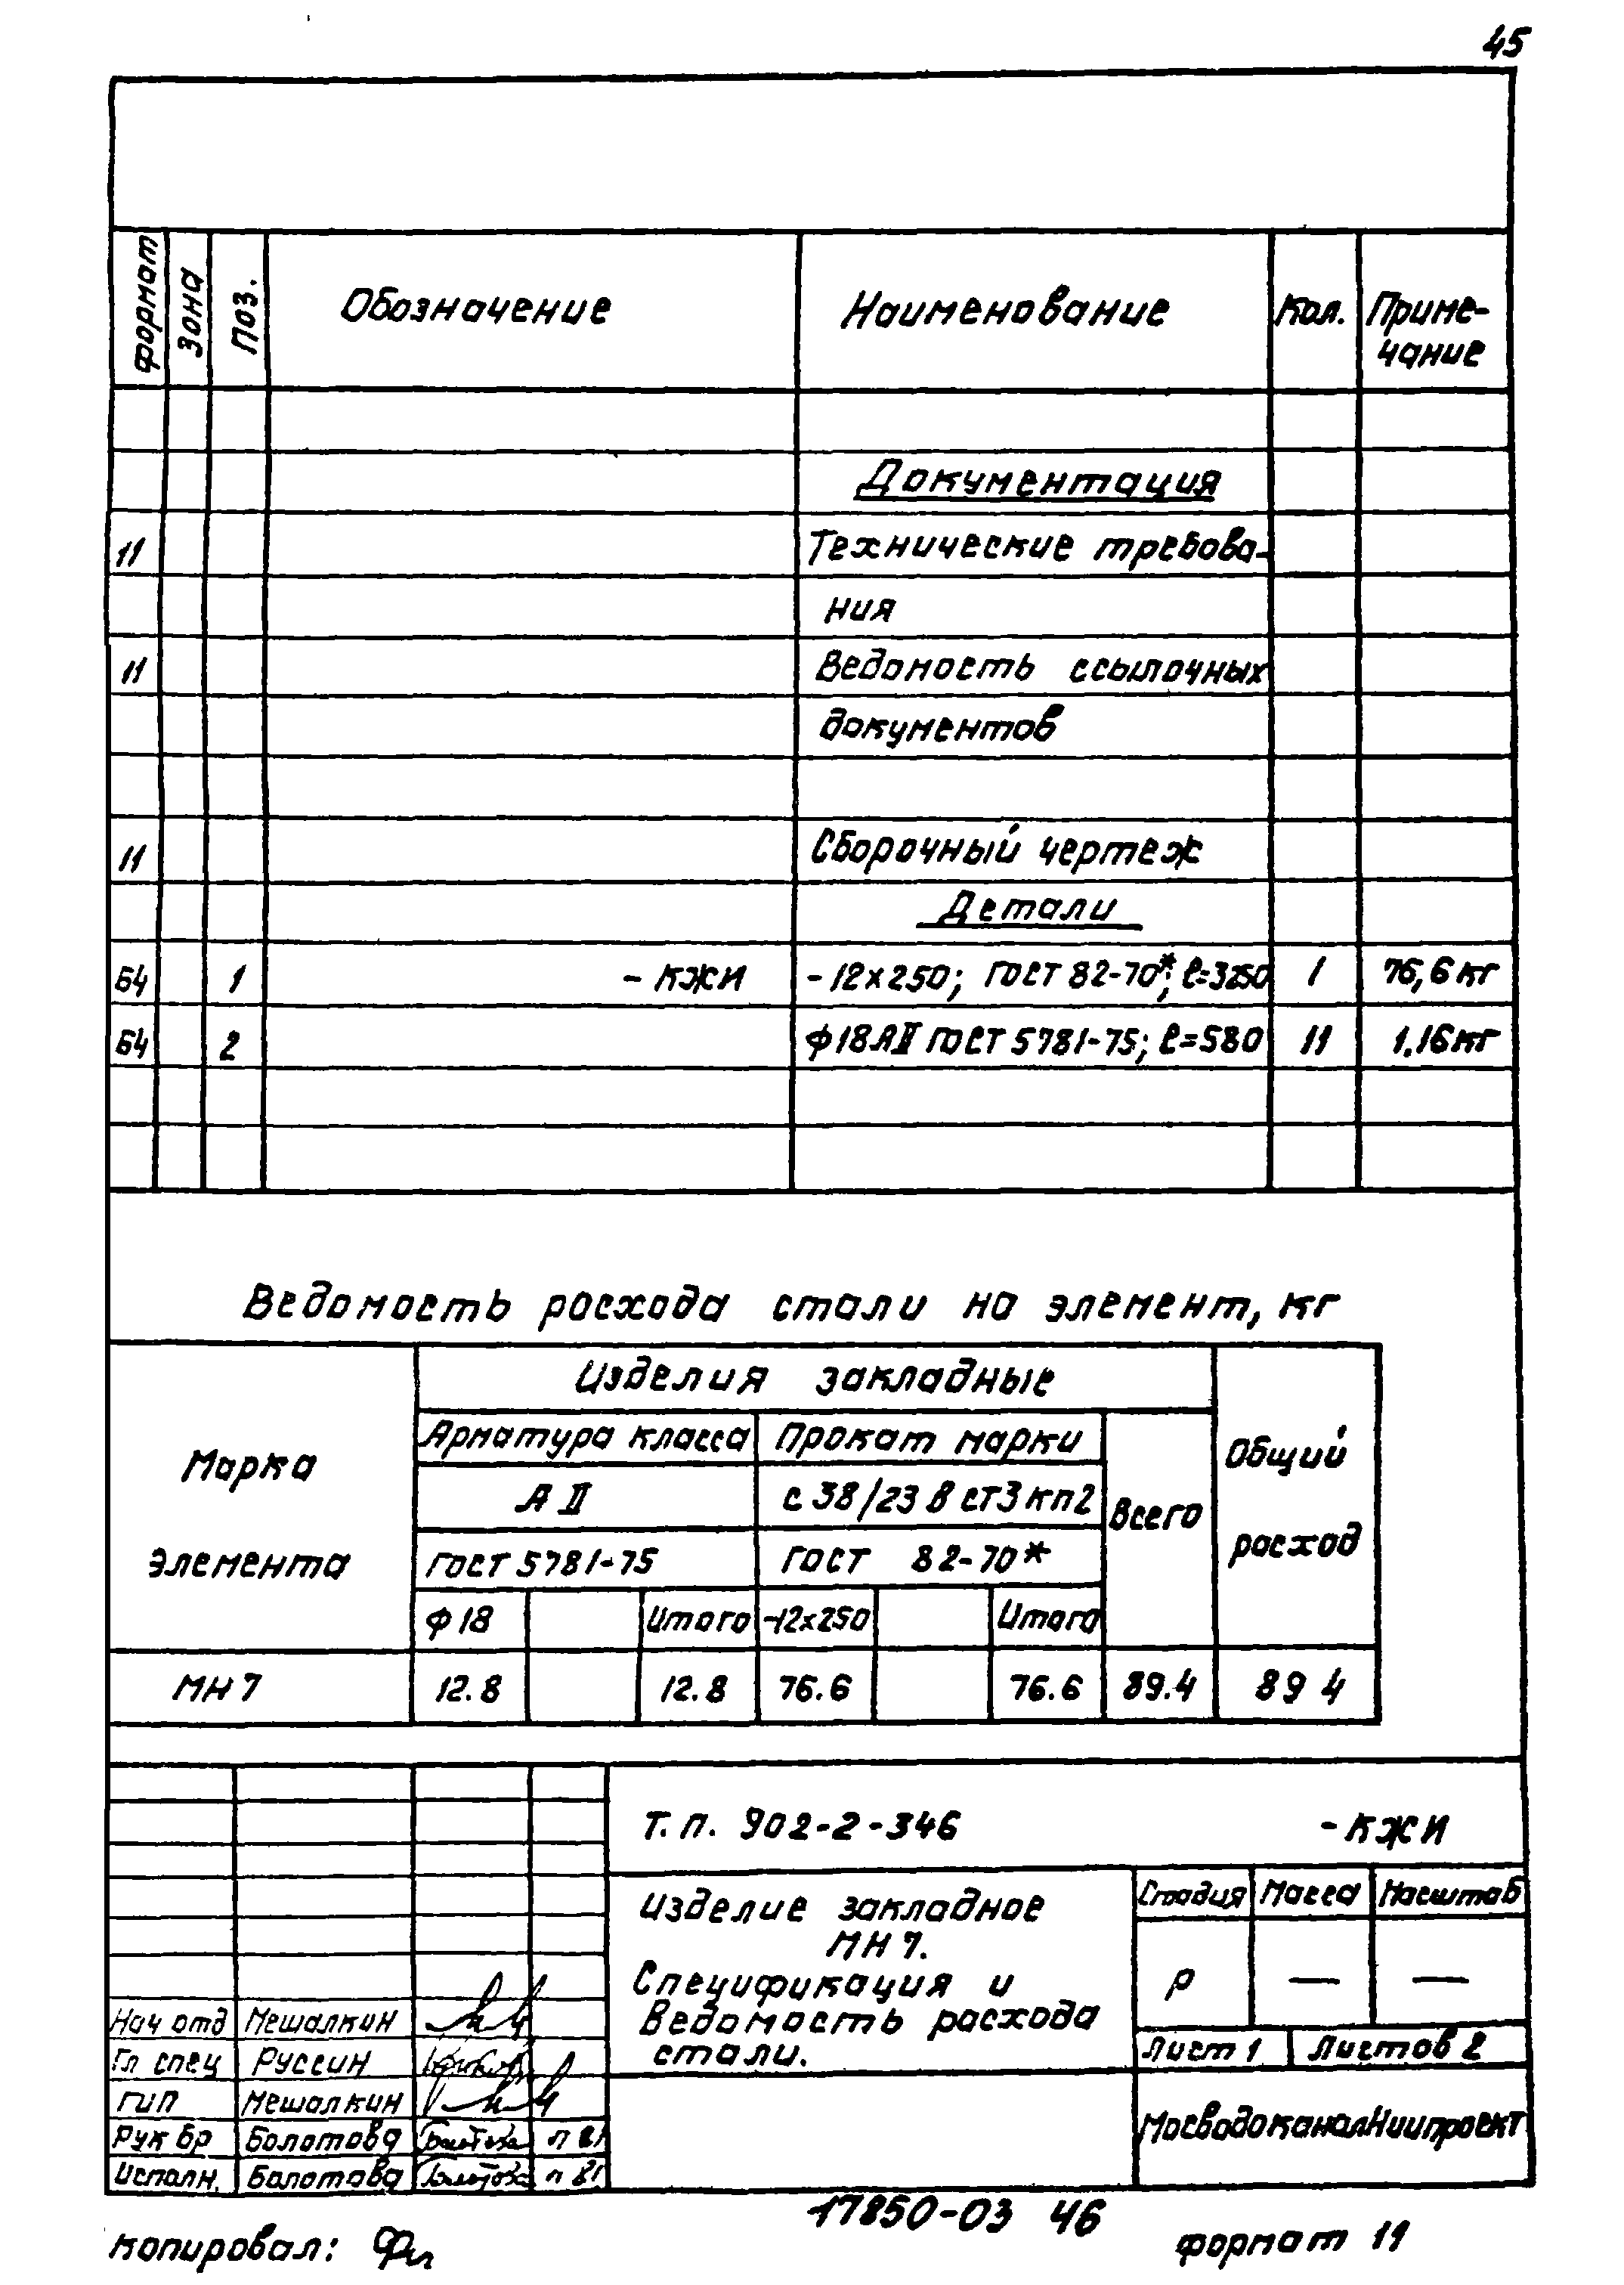 45
формат Зона Поз. Обозначение Наименование Кол. Приме-
чание
Документация
11 Технические требова-
ния
11 Ведомость ссылочных
документов
11 Сборочный чертеж
Детали
Б4 1 - КЖИ -12х250; ГОСТ 82-70*; ℓ=3250 1 76,6 кг
Б4 2 ф18АII ГОСТ 5781-75; ℓ=580 11 1.16кг
Ведомость расхода стали на элемент, кг
Марка
элемента
Изделия закладные
Арматура класса Прокат марки
А II с 38/23 В ст3 кп2
ГОСТ 5781-75 ГОСТ 82-70*
Всего
Общий
расход
ф 18 Итого -12х250 Итого
МН 7 12.8 12.8 76.6 76.6 89.4 89 4
Т. п. 902-2-346 - КЖИ
Изделие закладное
МН 7.
Спецификация и
Ведомость расхода
стали.
Стадия Масса Масштаб
Р — —
Лист 1 Листов 2
МосводоканалНиипроект
Нач отд Мешалкин
Гл спец Руссин
ГИП Мешалкин
Рук бр Болотова
Исполн. Болотова
17850-03 46
Копировал:
формат 11